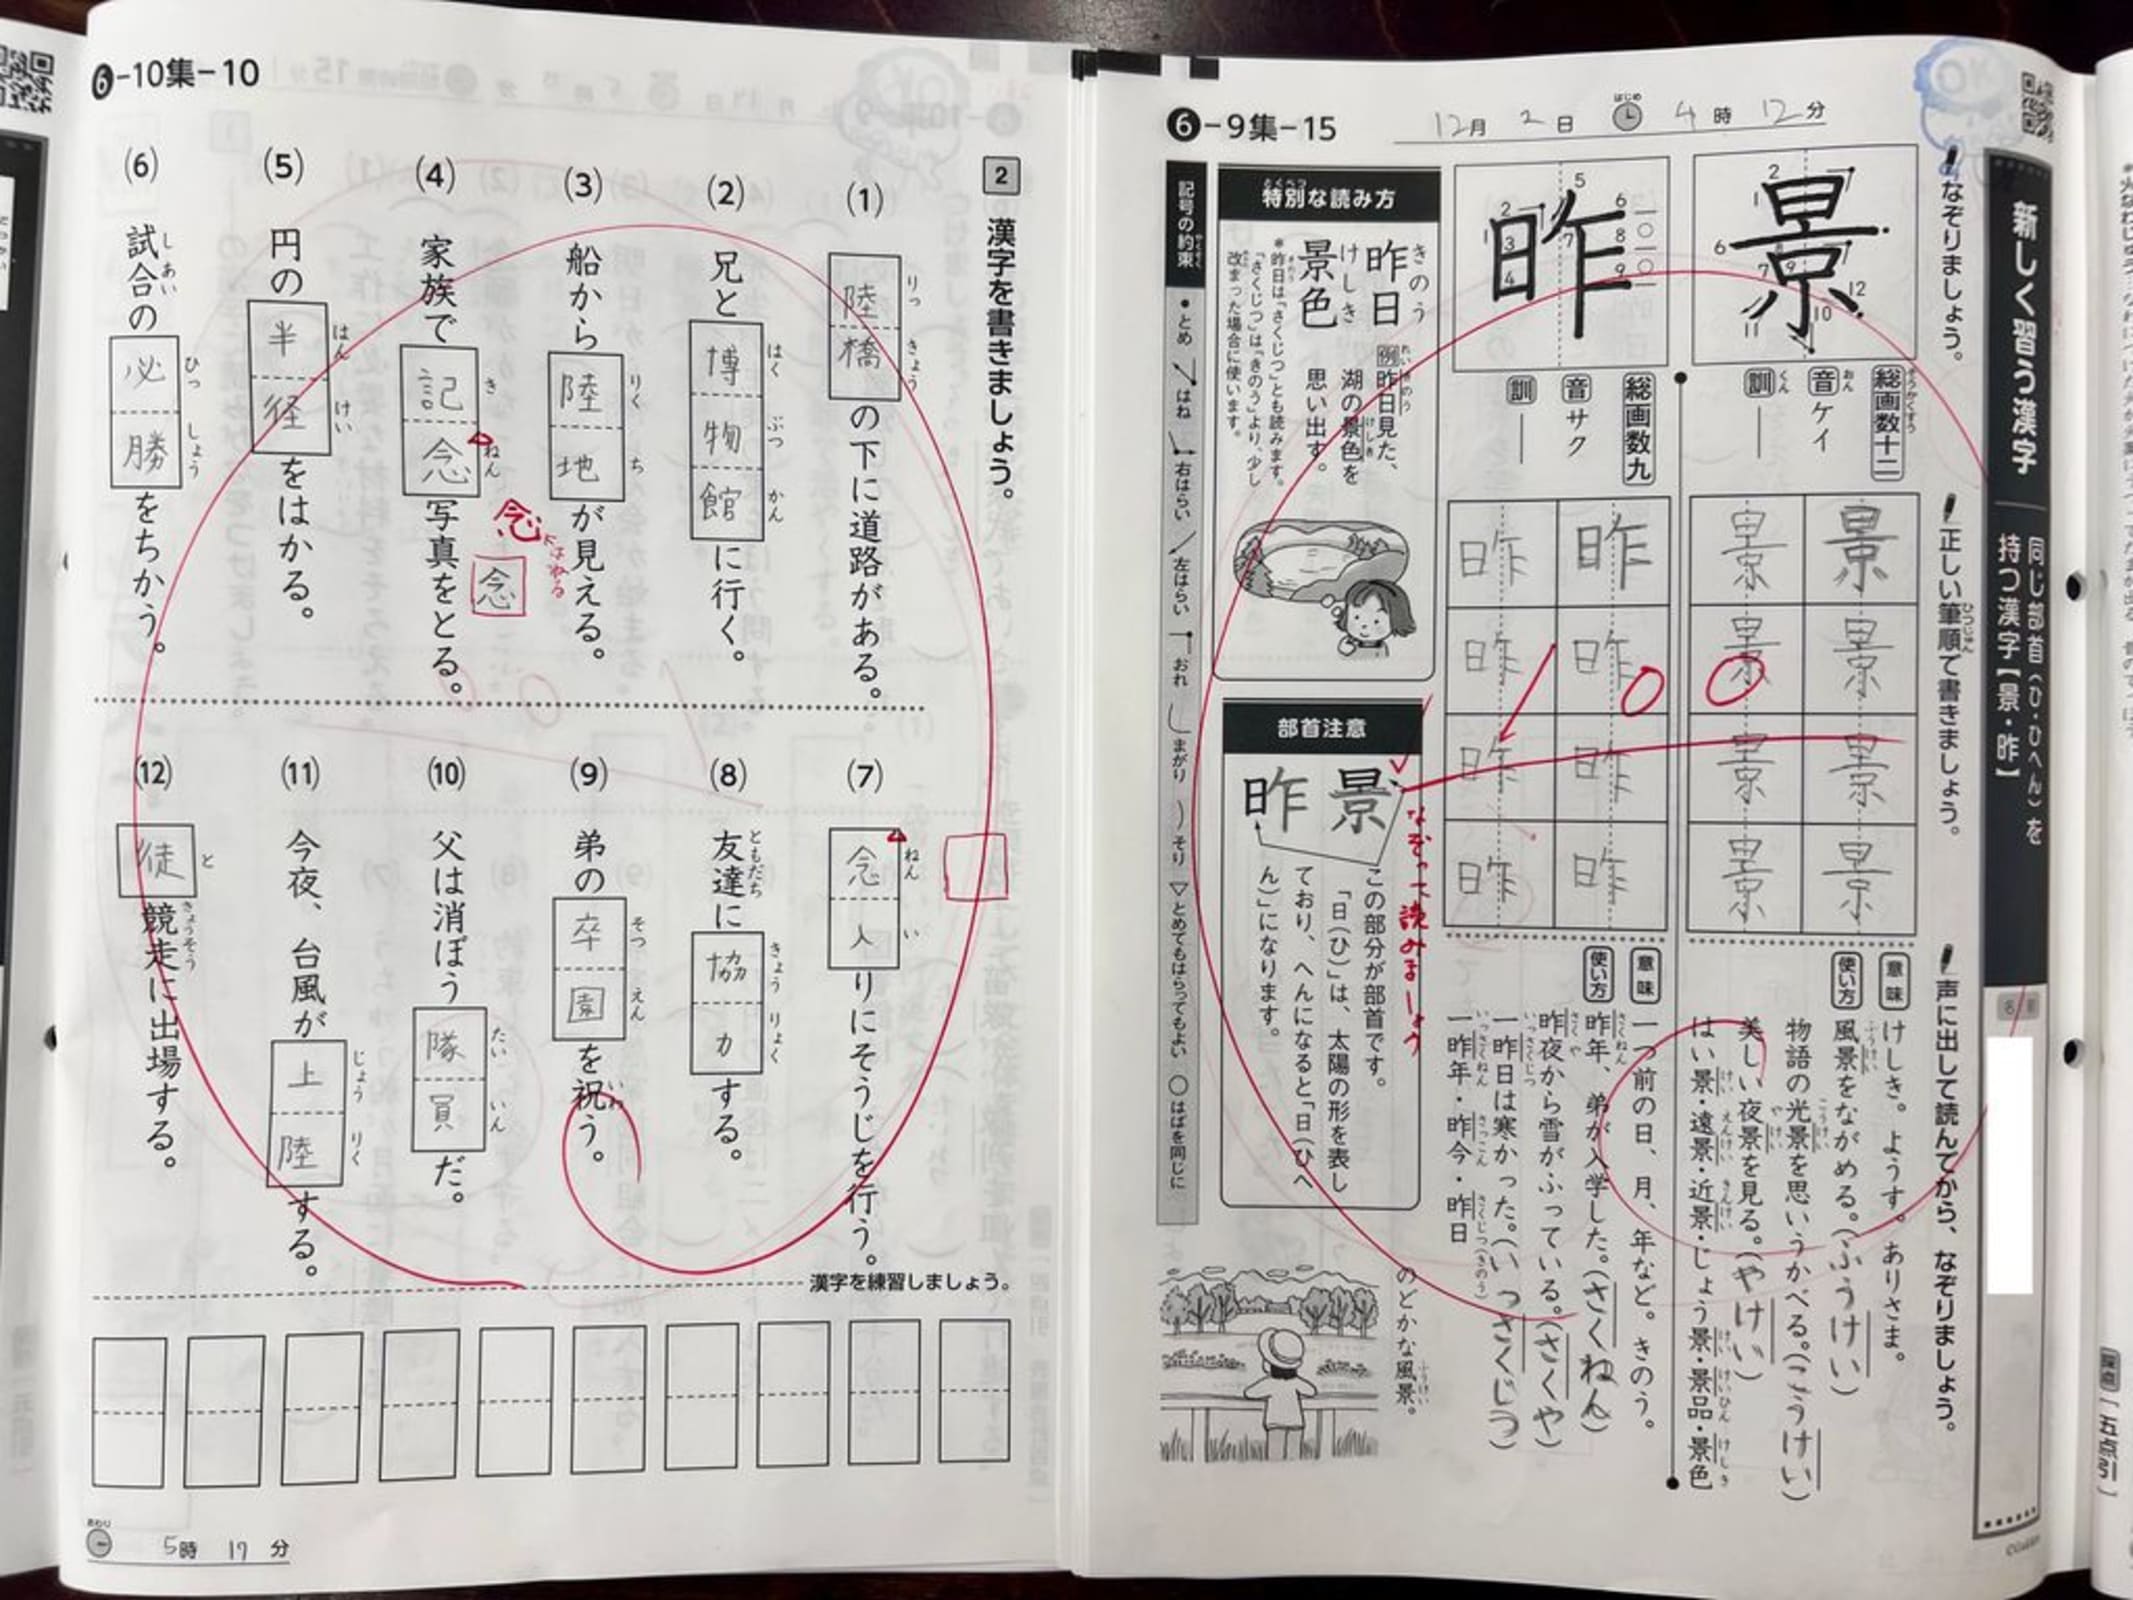 6-9集-15
12月2日 はじめ 4時12分
新しく習う漢字
同じ部首(ひ・ひへん)を持つ漢字【景・昨】
なぞりましょう。
景
総画数十二
音 ケイ
訓 ―
昨
総画数九
音 サク
訓 ―
正しい筆順で書きましょう。
景 景
景 景
景 景
景 景
昨 昨
昨 昨
昨 昨
昨 昨
100
声に出して読んでから、なぞりましょう。
意味 けしき。ようす。ありさま。
使い方 風景をながめる。(ふうけい)
物語の光景を思いうかべる。(こうけい)
美しい夜景を見る。(やけい)
はい景・遠景・近景・じょう景・景品・景色
意味 一つ前の日、月、年など。きのう。
使い方 昨年、弟が入学した。(さくねん)
昨夜から雪がふっている。(さくや)
一昨日は寒かった。(いっさくじつ)
一昨年・昨今・昨日
特別な読み方
昨日 きのう
景色 けしき
例 昨日見た、湖の景色を思い出す。
*昨日は「さくじつ」とも読みます。「さくじつ」は「きのう」より、少し改まった場合に使います。
部首注意
景 昨
この部分が部首です。
「日(ひ)」は、太陽の形を表しており、へんになると「日(ひへん)」になります。
なぞって読みましょう
のどかな風景。
記号の約束 ・とめ はね 右はらい 左はらい おれ まがり そり ▽とめてもはらってもよい ○はばを同じに
6-10集-10
2 漢字を書きましょう。
(1) 陸橋の下に道路がある。
りっきょう
(2) 兄と博物館に行く。
はくぶつかん
(3) 船から陸地が見える。
りくち
(4) 家族で記念写真をとる。
きねん
念 はねる
念
(5) 円の半径をはかる。
はんけい
(6) 試合の必勝をちかう。
しあい ひっしょう
(7) 念入りにそうじを行う。
ねんい
(8) 友達に協力する。
ともだち きょうりょく
(9) 弟の卒園を祝う。
そつえん いわ
(10) 父は消ぼう隊員だ。
たいいん
(11) 今夜、台風が上陸する。
じょうりく
(12) 徒競走に出場する。
と きょうそう
漢字を練習しましょう。
おわり 5時17分